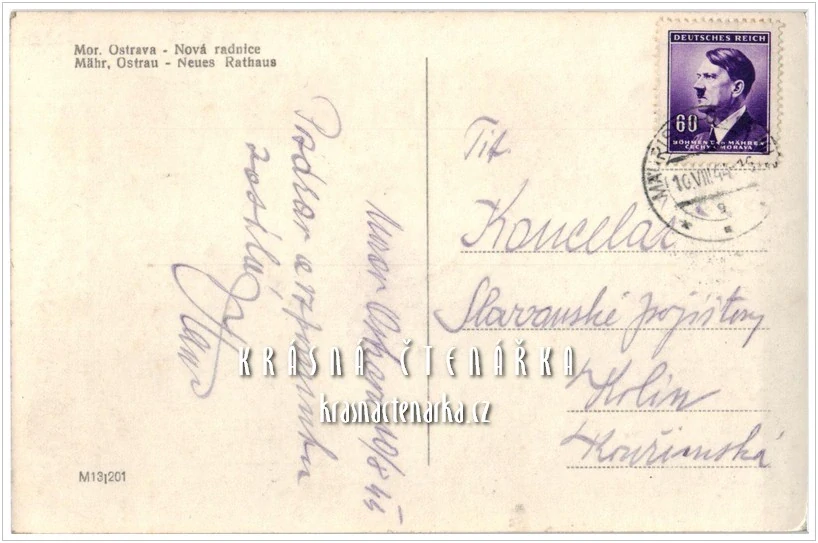 Mor. Ostrava - Nová radnice
Mähr, Ostrau - Neues Rathaus
DEUTSCHES REICH
60
BÖHMEN U. MÄHREN
ČECHY A MORAVA
10.VIII.44
Morav Ostrava 10/8 44
Pozdrav a vzpomínku
zasílá
Tit.
Kancelář
Slavanské pojišťovny
Kolín
Kouřimská
KRÁSNÁ ČTENÁŘKA
krasnactenarka.cz
M13|201